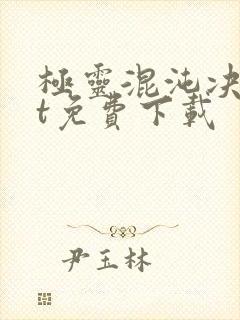 極靈混沌決
t免費下載
尹玉林